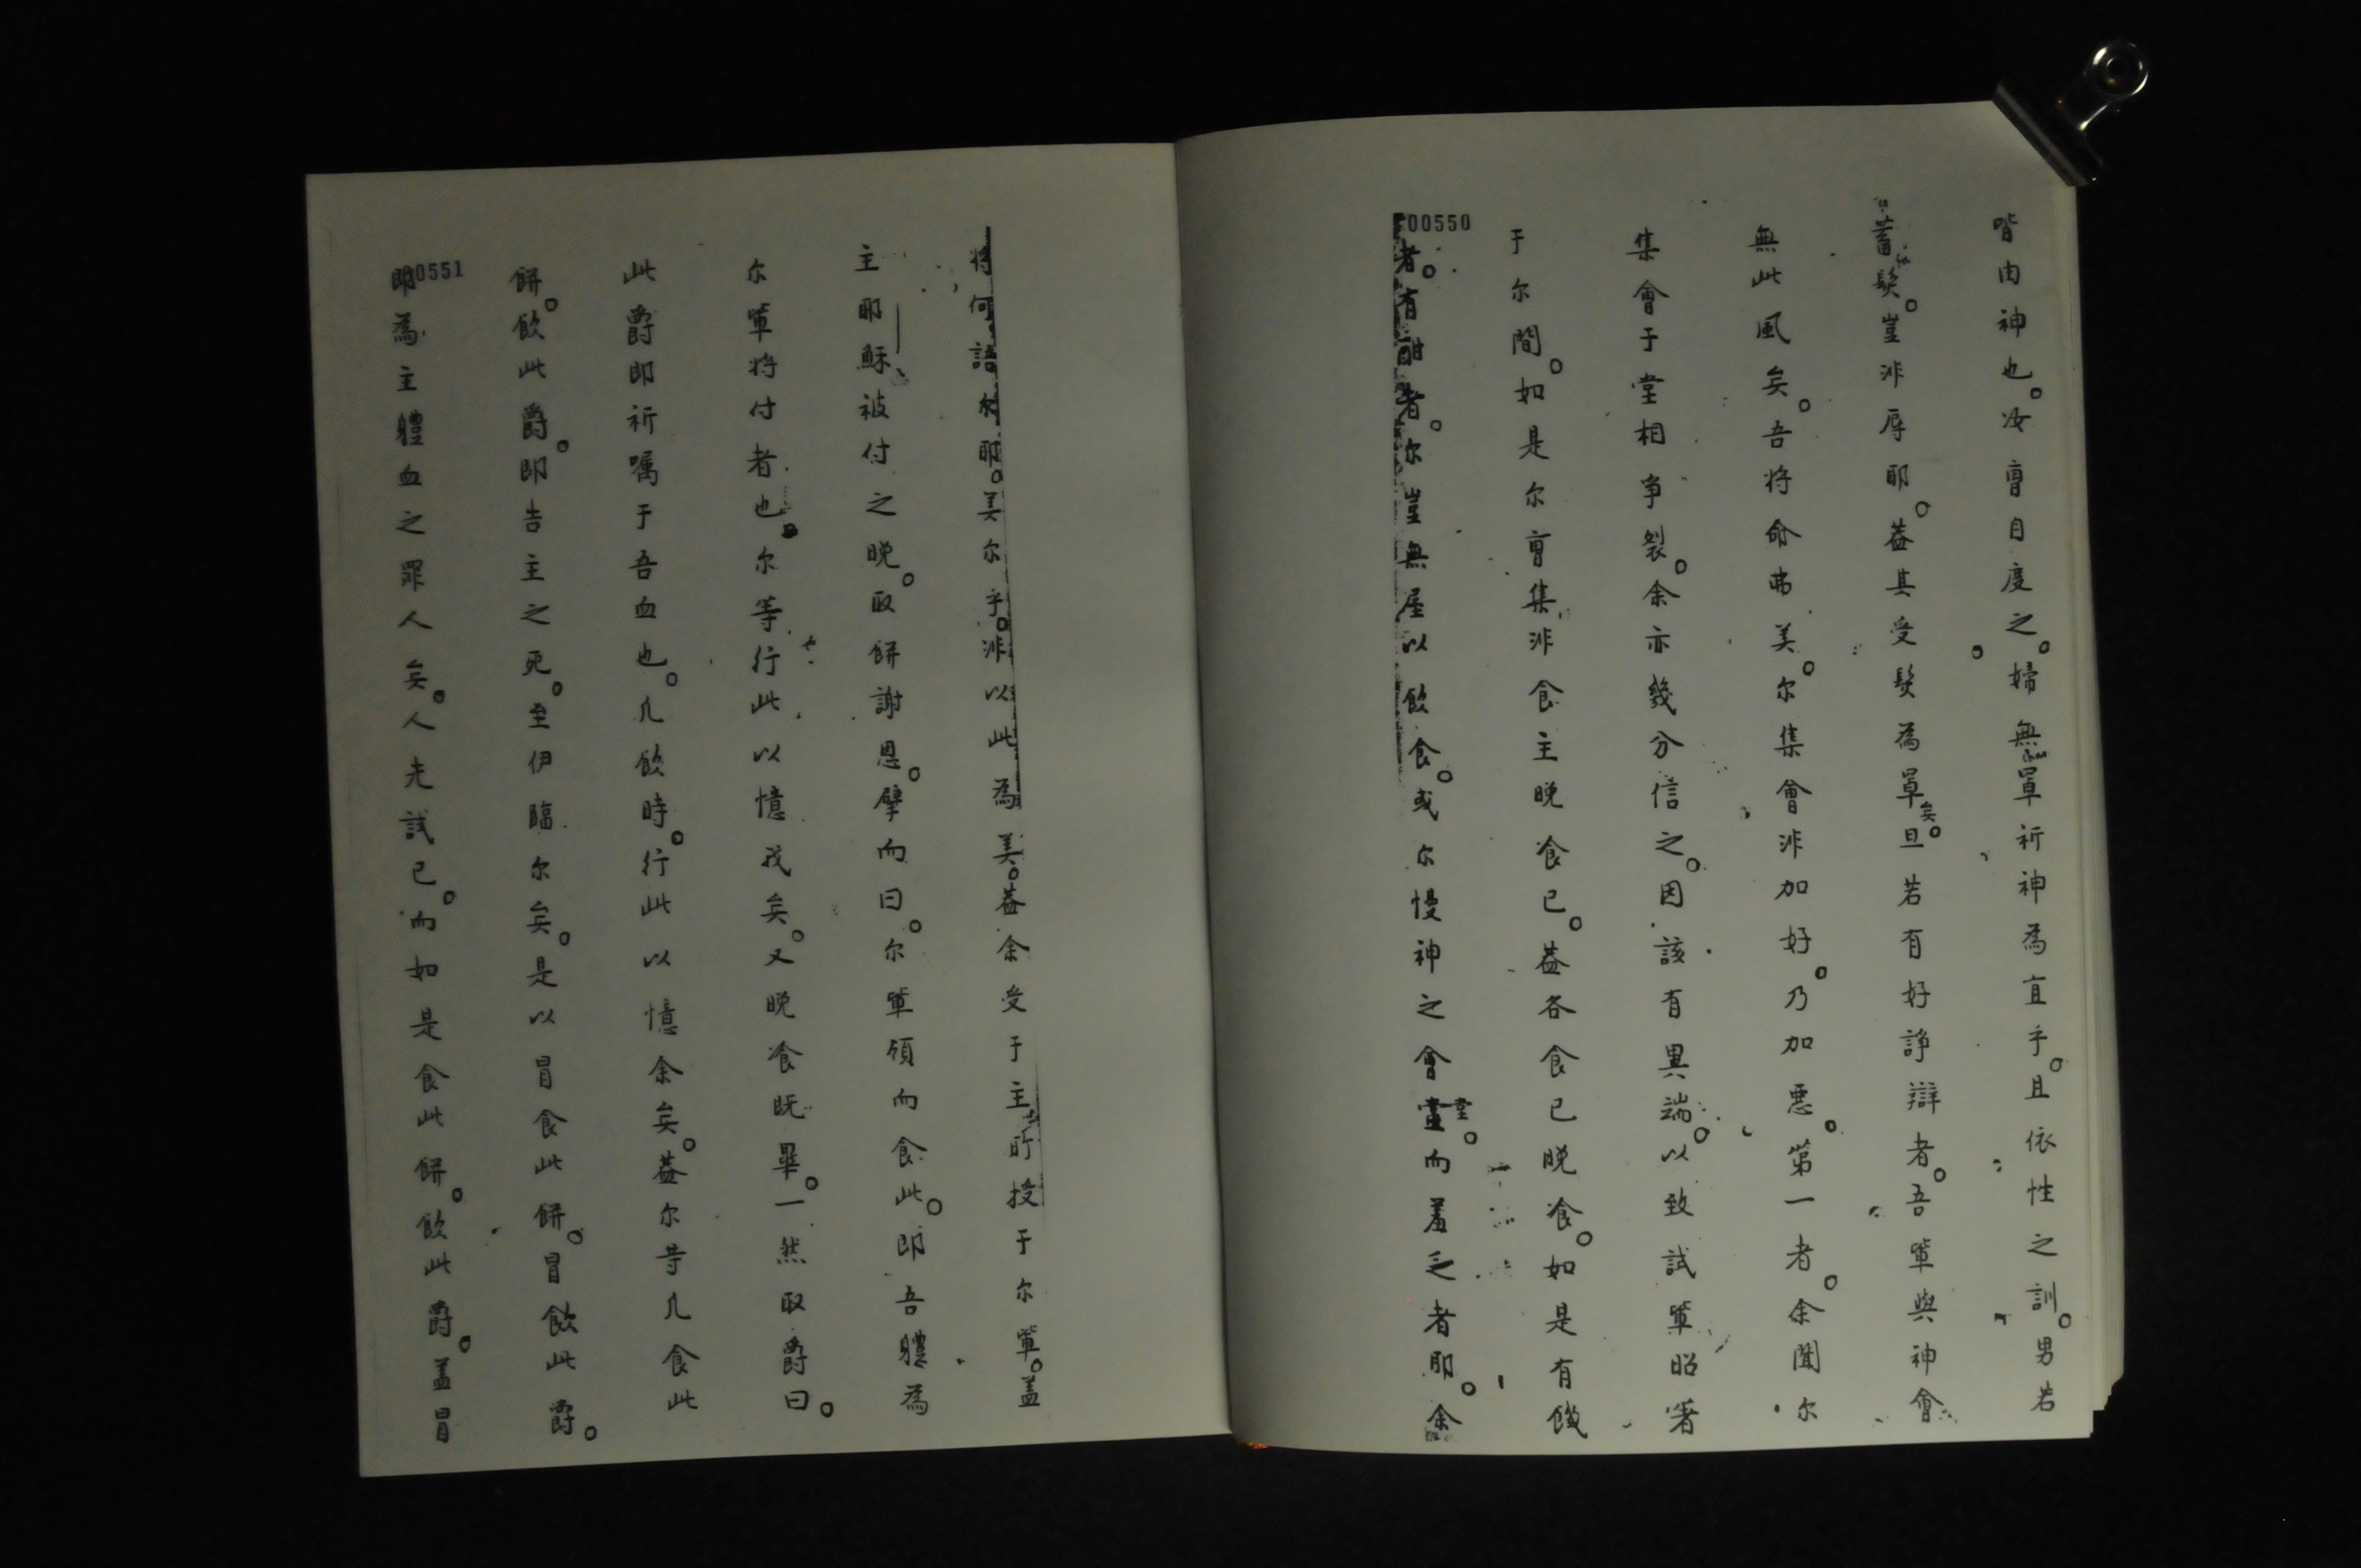 皆由神也。汝曹自度之。婦無罩祈神為宜乎。且依性之訓。男若
蓄髮。豈非辱耶。蓋其受髮為罩矣。旦若有好諍辯者。吾軰與神會
無此風矣。吾將命弗美。尔集會非加好。乃加悪。第一者。余聞尔
集會于堂相争裂。余亦幾分信之。因該有異端。以致試軰昭著
于尔間。如是尔曹集非食主晚飡已。蓋各食已晚飡。如是有饑
者。有酣者。尔豈無屋以飲食。或尔慢神之會堂。而羞乏者耶。余
00550
將何語尔耶。美尔乎。非以此為美。蓋余受于主所授于尔軰。盖
主耶穌被付之晚。取餅謝恩。擘而曰。尔軰領而食此。即吾軆為
尔軰将付者也。尔等行此以憶我矣。又晚飡既畢。一然取爵曰。
此爵即祈嘱于吾血也。凡飲時。行此以憶余矣。蓋尔等凡食此
餅。飲此爵。即告主之死。至伊臨尔矣。是以冒食此餅。冒飲此爵。
即為主軆血之罪人矣。人先試已。而如是食此餅。飲此爵。盖冒
00551